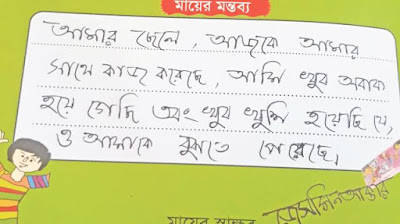 মায়ের মন্তব্য
আমার ছেলে, আজকে আমার
সাথে কাজ করেছে, আমি খুব অবাক
হয়ে গেছি এবং খুব খুশি হয়েছি যে,
ও আমাকে বুঝতে পেরেছে।
মায়ের স্বাক্ষর